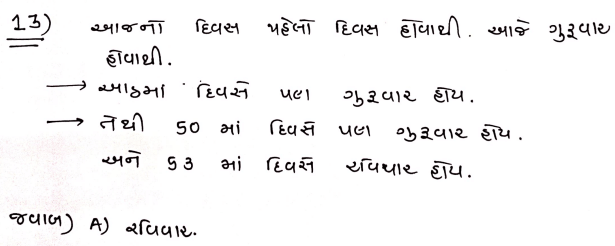 13) આજનો દિવસ પહેલો દિવસ હોવાથી. આજે ગુરૂવાર
હોવાથી.
→ આઠમાં દિવસે પણ ગુરૂવાર હોય.
→ તેથી 50 માં દિવસે પણ ગુરૂવાર હોય.
અને 53 માં દિવસે રવિવાર હોય.
જવાબ) A) રવિવાર.